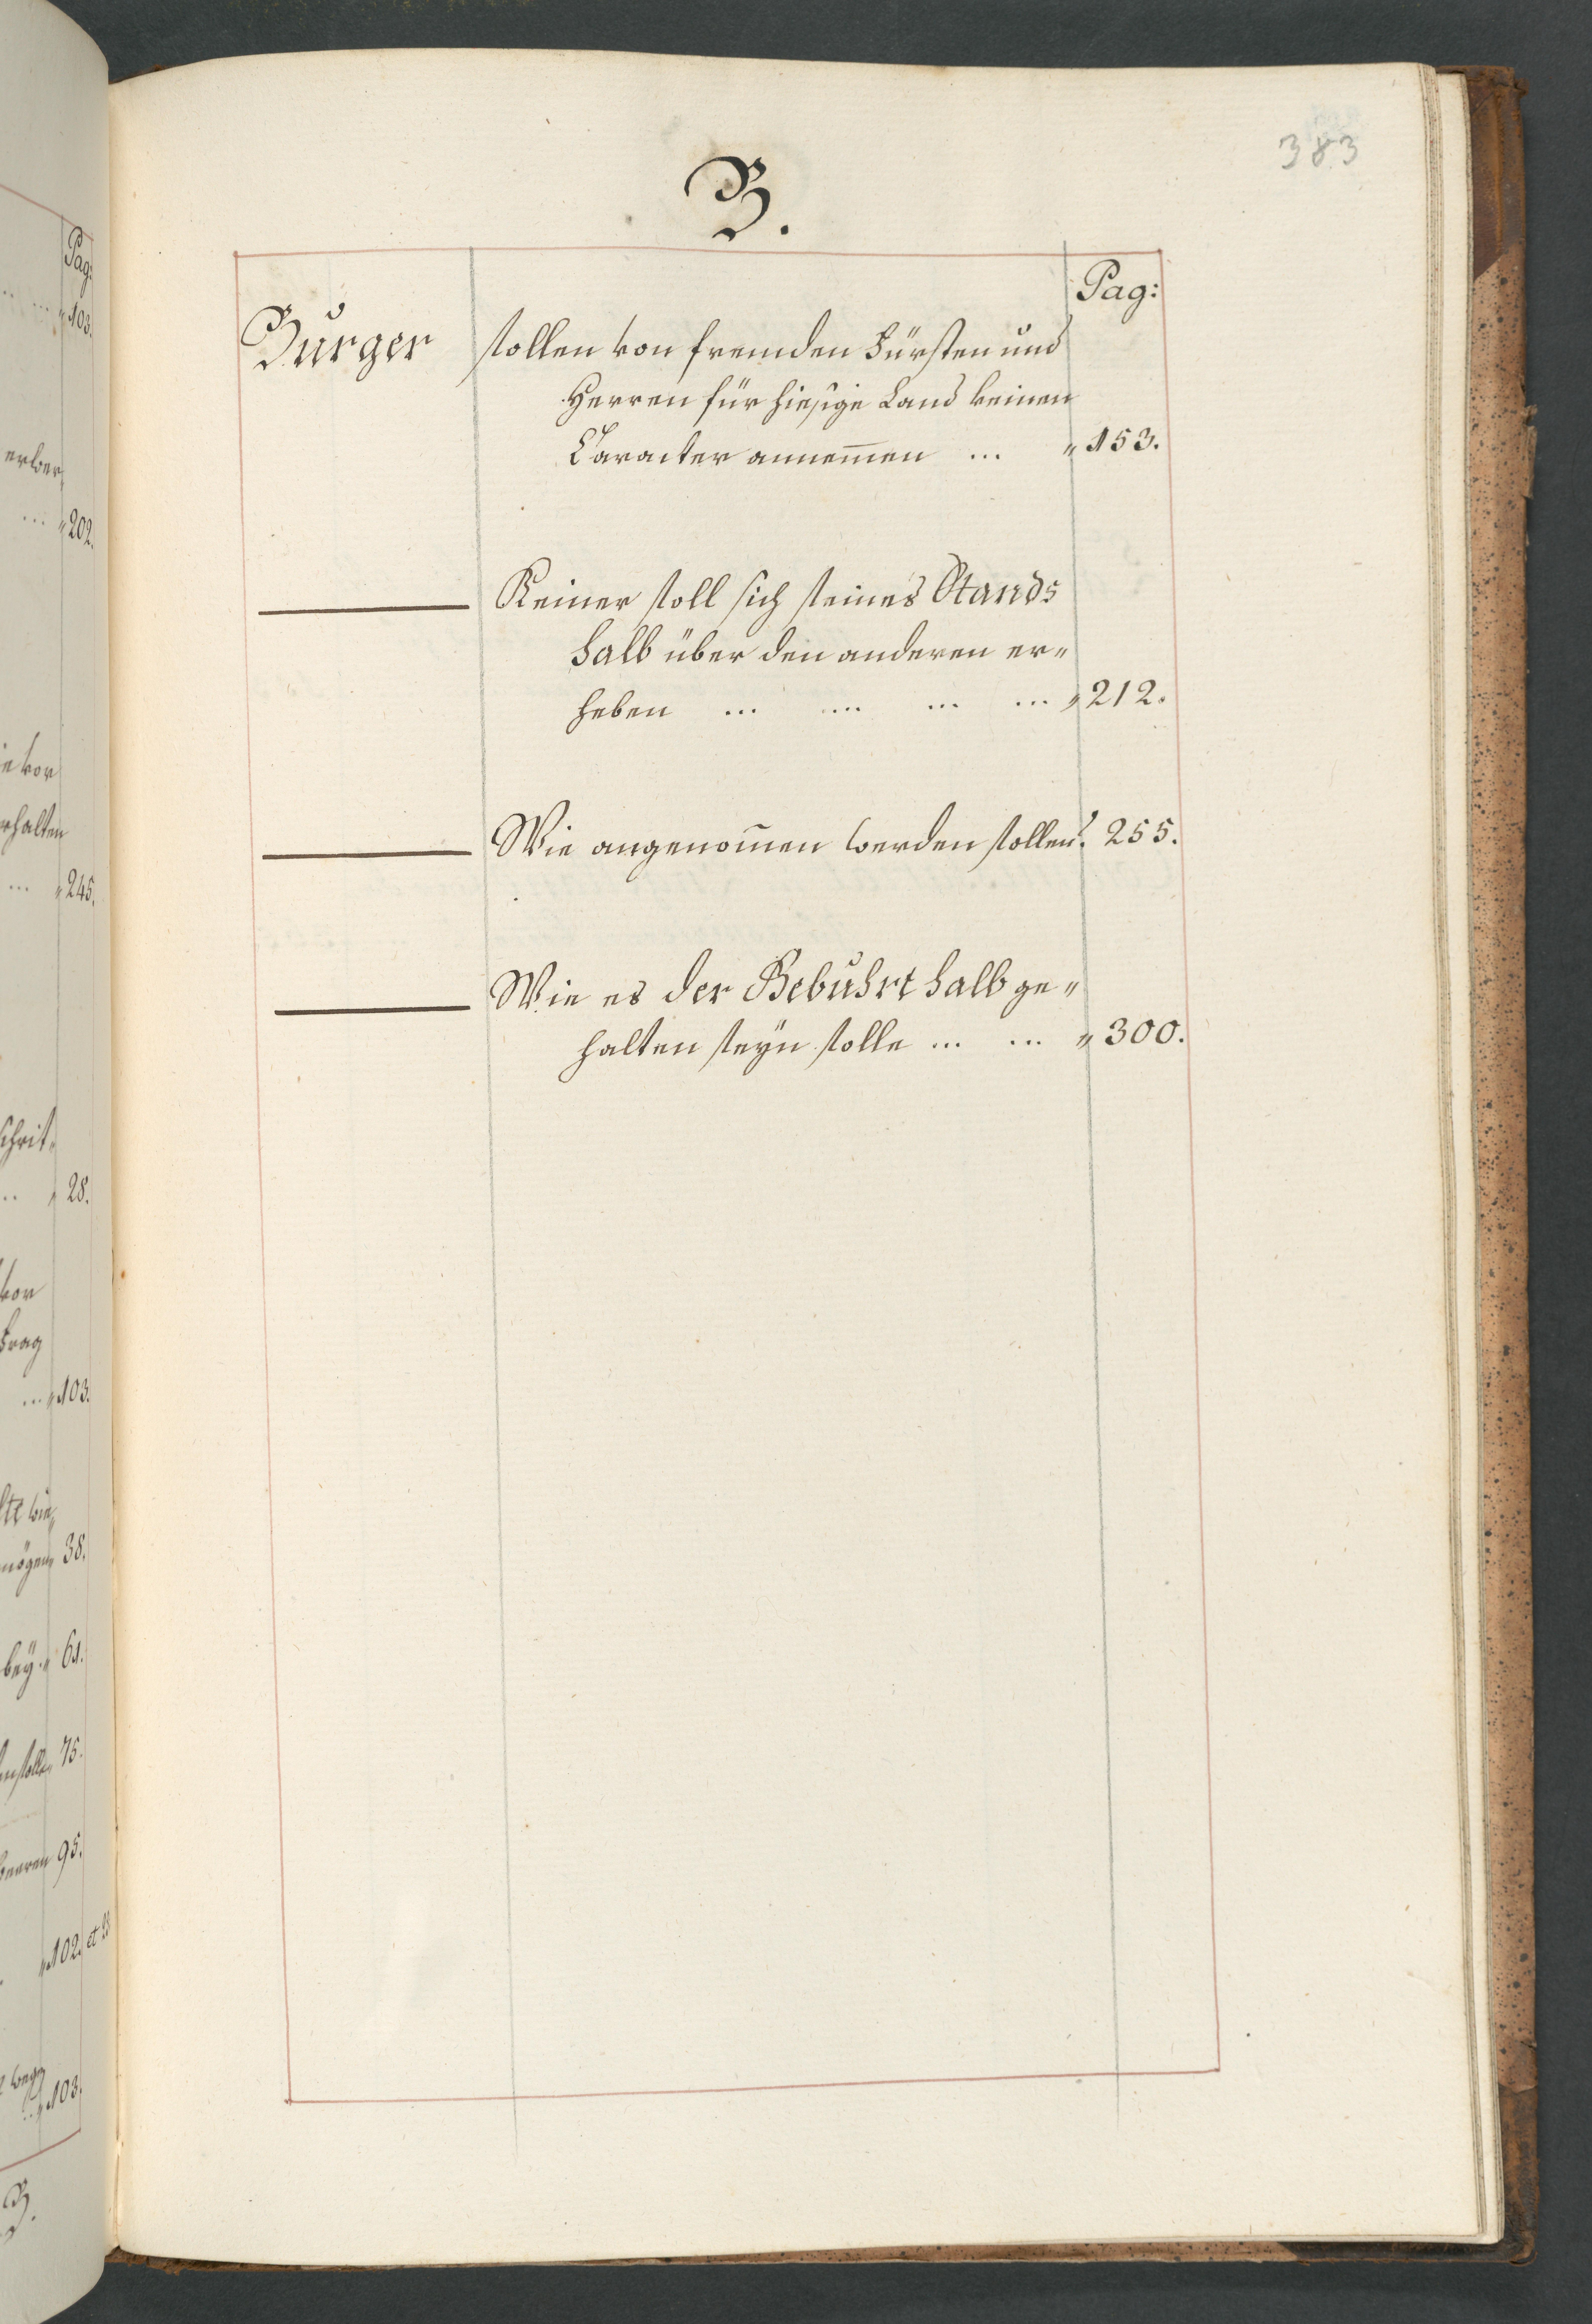 383
B.
Pag:
Burger sollen von fremden Fürsten und
Herren für hiesige Land keinen
Caracter annem̄en ... „ 153.
Keiner soll sich seines Stands
halb über den anderen er„
heben ... ... ... ... „ 212.
Wie angenom̄en werden sollen? 255.
Wie es der Gebuhrt halb ge„
halten seÿn solle ... ... „ 300.
Pag:
„ 103.
... „ 202.
rhalten
... „ 245.
28.
... „ 103.
38.
beÿ „ 61.
75.
95.
„ 102. et
„ 103.
B.